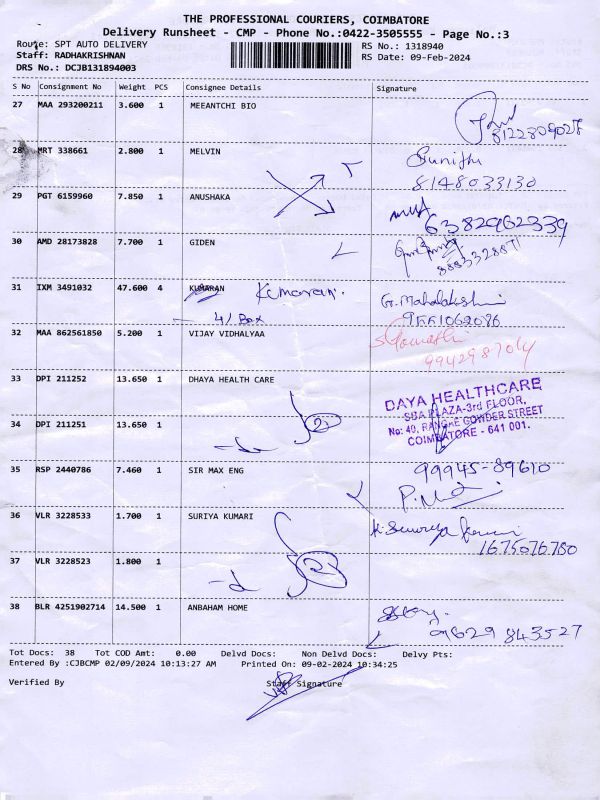 THE PROFESSIONAL COURIERS, COIMBATORE
Delivery Runsheet - CMP - Phone No.:0422-3505555 - Page No.:3
Route: SPT AUTO DELIVERY RS No.: 1318940
Staff: RADHAKRISHNAN RS Date: 09-Feb-2024
DRS No.: DCJB131894003
S No Consignment No Weight PCS Consignee Details Signature
27 MAA 293200211 3.600 1 MEEANTCHI BIO
8122809028
28 MRT 338661 2.800 1 MELVIN Sunitha
8148033130
29 PGT 6159960 7.850 1 ANUSHAKA
6382962339
30 AMD 28173828 7.700 1 GIDEN
31 IXM 3491032 47.600 4 KUMARAN Kumaran. G. Mahalakshmi
4/ Box
32 MAA 862561850 5.200 1 VIJAY VIDHALYAA
9942987064
33 DPI 211252 13.650 1 DHAYA HEALTH CARE
DAYA HEALTHCARE
SBA PLAZA-3rd FLOOR,
No: 49, RANGHE GOWDER STREET
COIMBATORE - 641 001.
34 DPI 211251 13.650 1
2
35 RSP 2440786 7.460 1 SIR MAX ENG 99945-89610
36 VLR 3228533 1.700 1 SURIYA KUMARI
1675076780
37 VLR 3228523 1.800 1
2
38 BLR 4251902714 14.500 1 ANBAHAM HOME
9629 843527
Tot Docs: 38 Tot COD Amt: 0.00 Delvd Docs: Non Delvd Docs: Delvy Pts:
Entered By :CJBCMP 02/09/2024 10:13:27 AM Printed On: 09-02-2024 10:34:25
Verified By Staff Signature